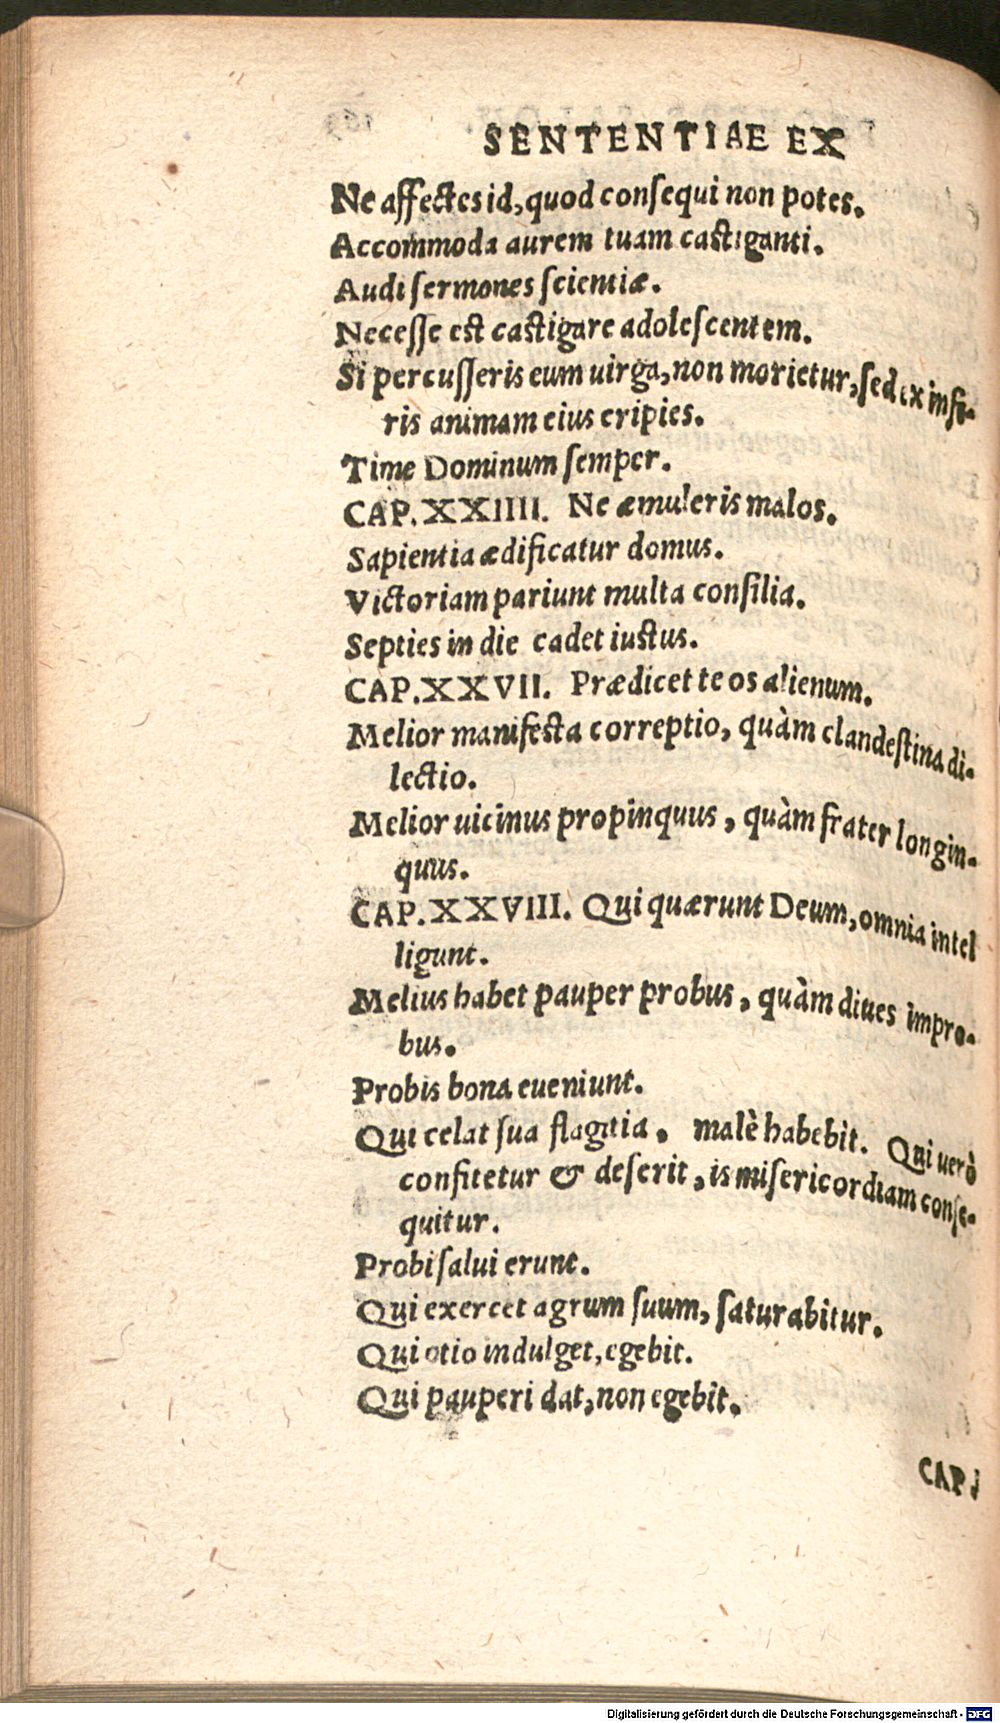 SENTENTIAE EX
Ne affectes id, quod consequi non potes.
Accommoda aurem tuam castiganti.
Audi sermones scientiæ.
Necesse est castigare adolescentem.
Si percusseris eum uirga, non morietur, sed ex infe-
ris animam eius eripies.
Time Dominum semper.
CAP. XXIIII. Ne æmuleris malos.
Sapientia ædificatur domus.
Victoriam pariunt multa consilia.
Septies in die cadet iustus.
CAP. XXVII. Prædicet te os alienum.
Melior manifesta correptio, quàm clandestina di-
lectio.
Melior uicinus propinquus, quàm frater longin-
quus.
CAP. XXVIII. Qui quærunt Deum, omnia intel
ligunt.
Melius habet pauper probus, quàm diues impro-
bus.
Probis bona eueniunt.
Qui celat sua flagitia. malè habebit. Qui uerò
confitetur & deserit, is misericordiam conse-
quitur.
Probi salui erunt.
Qui exercet agrum suum, saturabitur.
Qui otio indulget, egebit.
Qui pauperi dat, non egebit.
CAP.
Digitalisierung gefördert durch die Deutsche Forschungsgemeinschaft - DFG